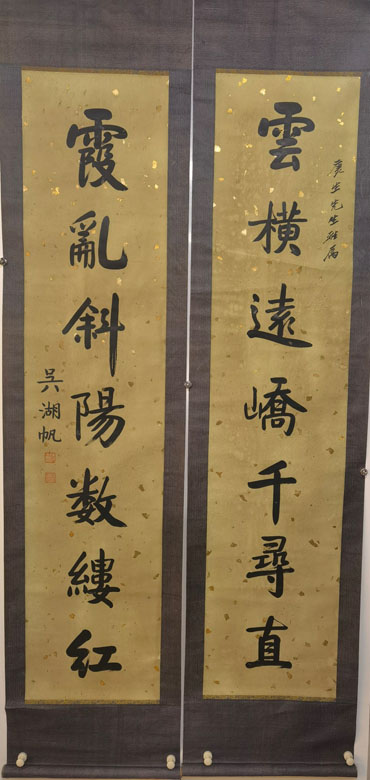 生先生雅屬
雲横遠嶠千尋直
霞亂斜陽数縷紅
吳湖帆